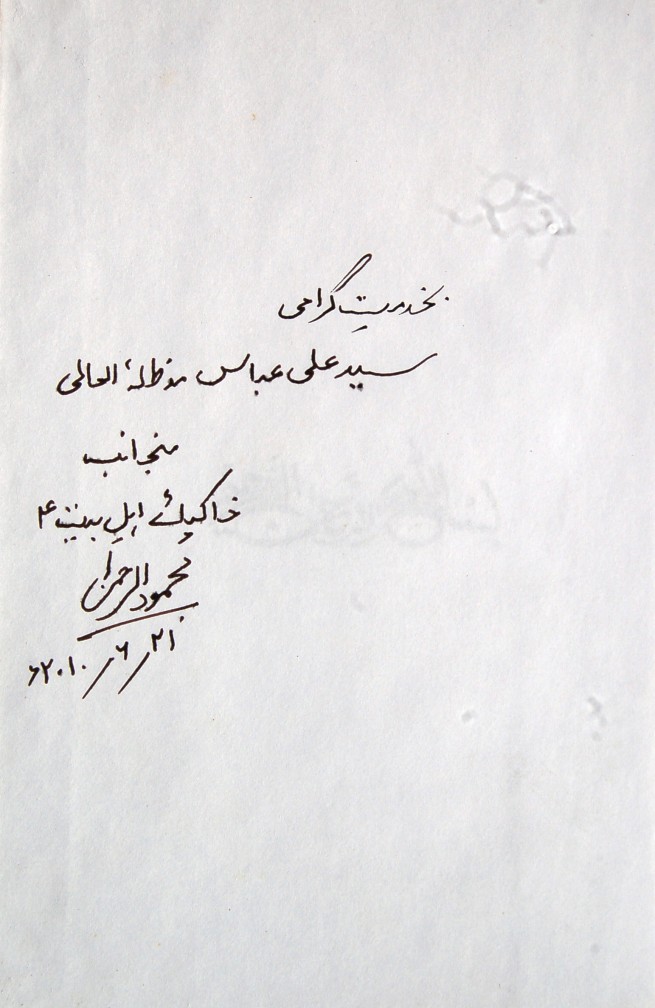 بخدمتِ گرامی
سید علی عباس مدظلہٗ العالی
منجانب
خاکپائے اہلِ بیتؑ
محمود الرحمن
۲۱/۶/۲۰۱۰ء